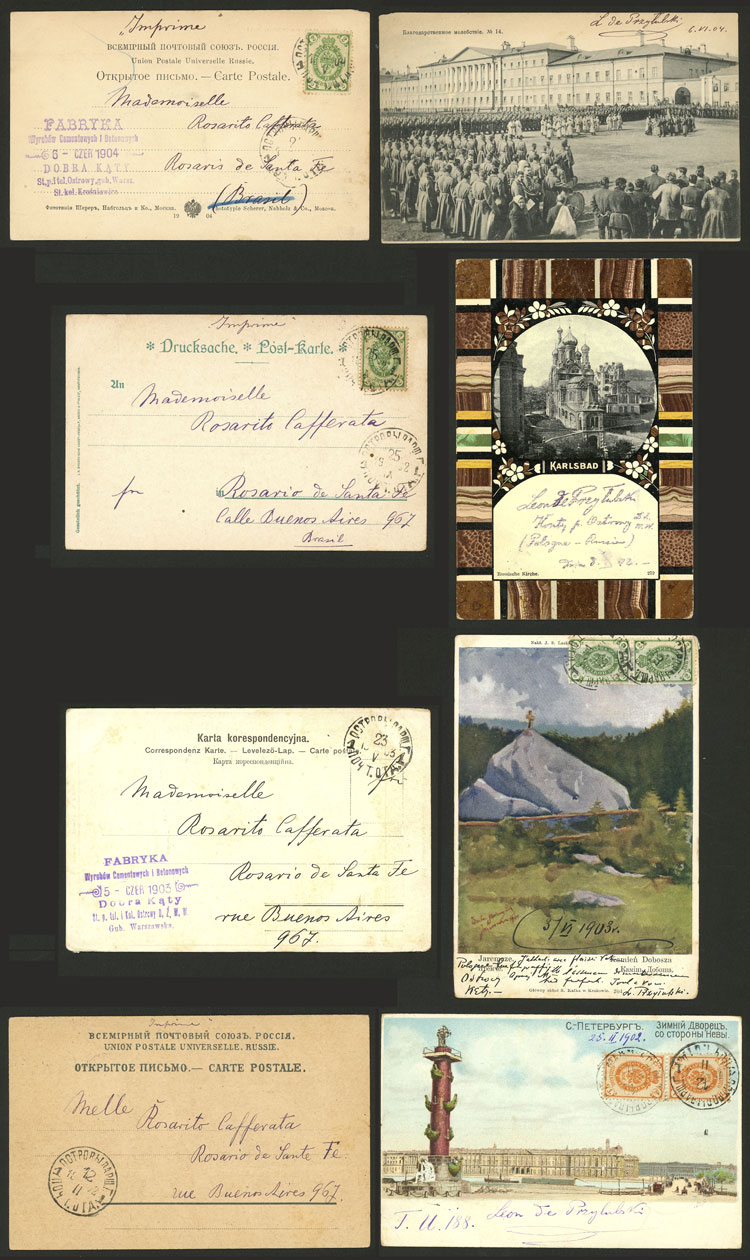 "Imprimé"
ВСЕМІРНЫЙ ПОЧТОВЫЙ СОЮЗЪ. РОССІЯ.
Union Postale Universelle Russie.
Открытое письмо. — Carte Postale.
Mademoiselle
Rosarito Cafferata
FABRYKA
Wyrobów Cementowych i Betonowych
5 - CZER 1904
DOBRA KĄTY
St. p. i tel. Ostrowy, gub. Warsz.
St. kol. Krośniewice.
Rosario de Santa Fe
(Brasil)
Фототипія Шереръ, Набгольцъ и Ко., Москва.
1904
Phototypie Scherer, Nabholz & Co., Moscou.
Благодарственное молебствіе. № 14.
L. de Przyłuski
6.VI.04.
"Imprimé"
* Drucksache. * Post-Karte. *
An
Mademoiselle
Rosarito Cafferata
25
in
Rosario de Santa Fe
Calle Buenos Aires 967
Brasil
KARLSBAD
Leon de Przyłuski
Kąty p. Ostrowy
(Pologne - Russie)
Russische Kirche.
Karta korespondencyjna.
Correspondenz Karte. — Levelező-Lap. — Carte postale.
Карта кореспонденційна.
23
V
Mademoiselle
Rosarito Cafferata
Rosario de Santa Fe
rue Buenos Aires
967.
FABRYKA
Wyrobów Cementowych i Betonowych
5 - CZER 1903
Dobra Kąty
St. p. tel. i kol. Ostrowy D. Ż. W. W
Gub. Warszawska.
3/VI 1903.
Jaremcze.
Kamień Dobosza
Яремче.
Камінь Добоша.
L. Przyłuski
"Imprimé"
ВСЕМІРНЫЙ ПОЧТОВЫЙ СОЮЗЪ. РОССІЯ.
UNION POSTALE UNIVERSELLE. RUSSIE.
ОТКРЫТОЕ ПИСЬМО. — CARTE POSTALE.
Melle Rosarito Cafferata
Rosario de Sante Fe
rue Buenos Aires 967.
12
II
С.-ПЕТЕРБУРГЪ. ЗИМНІЙ ДВОРЕЦЪ,
СО СТОРОНЫ НЕВЫ.
25.II.1902.
T.U.188. Leon de Przyłuski